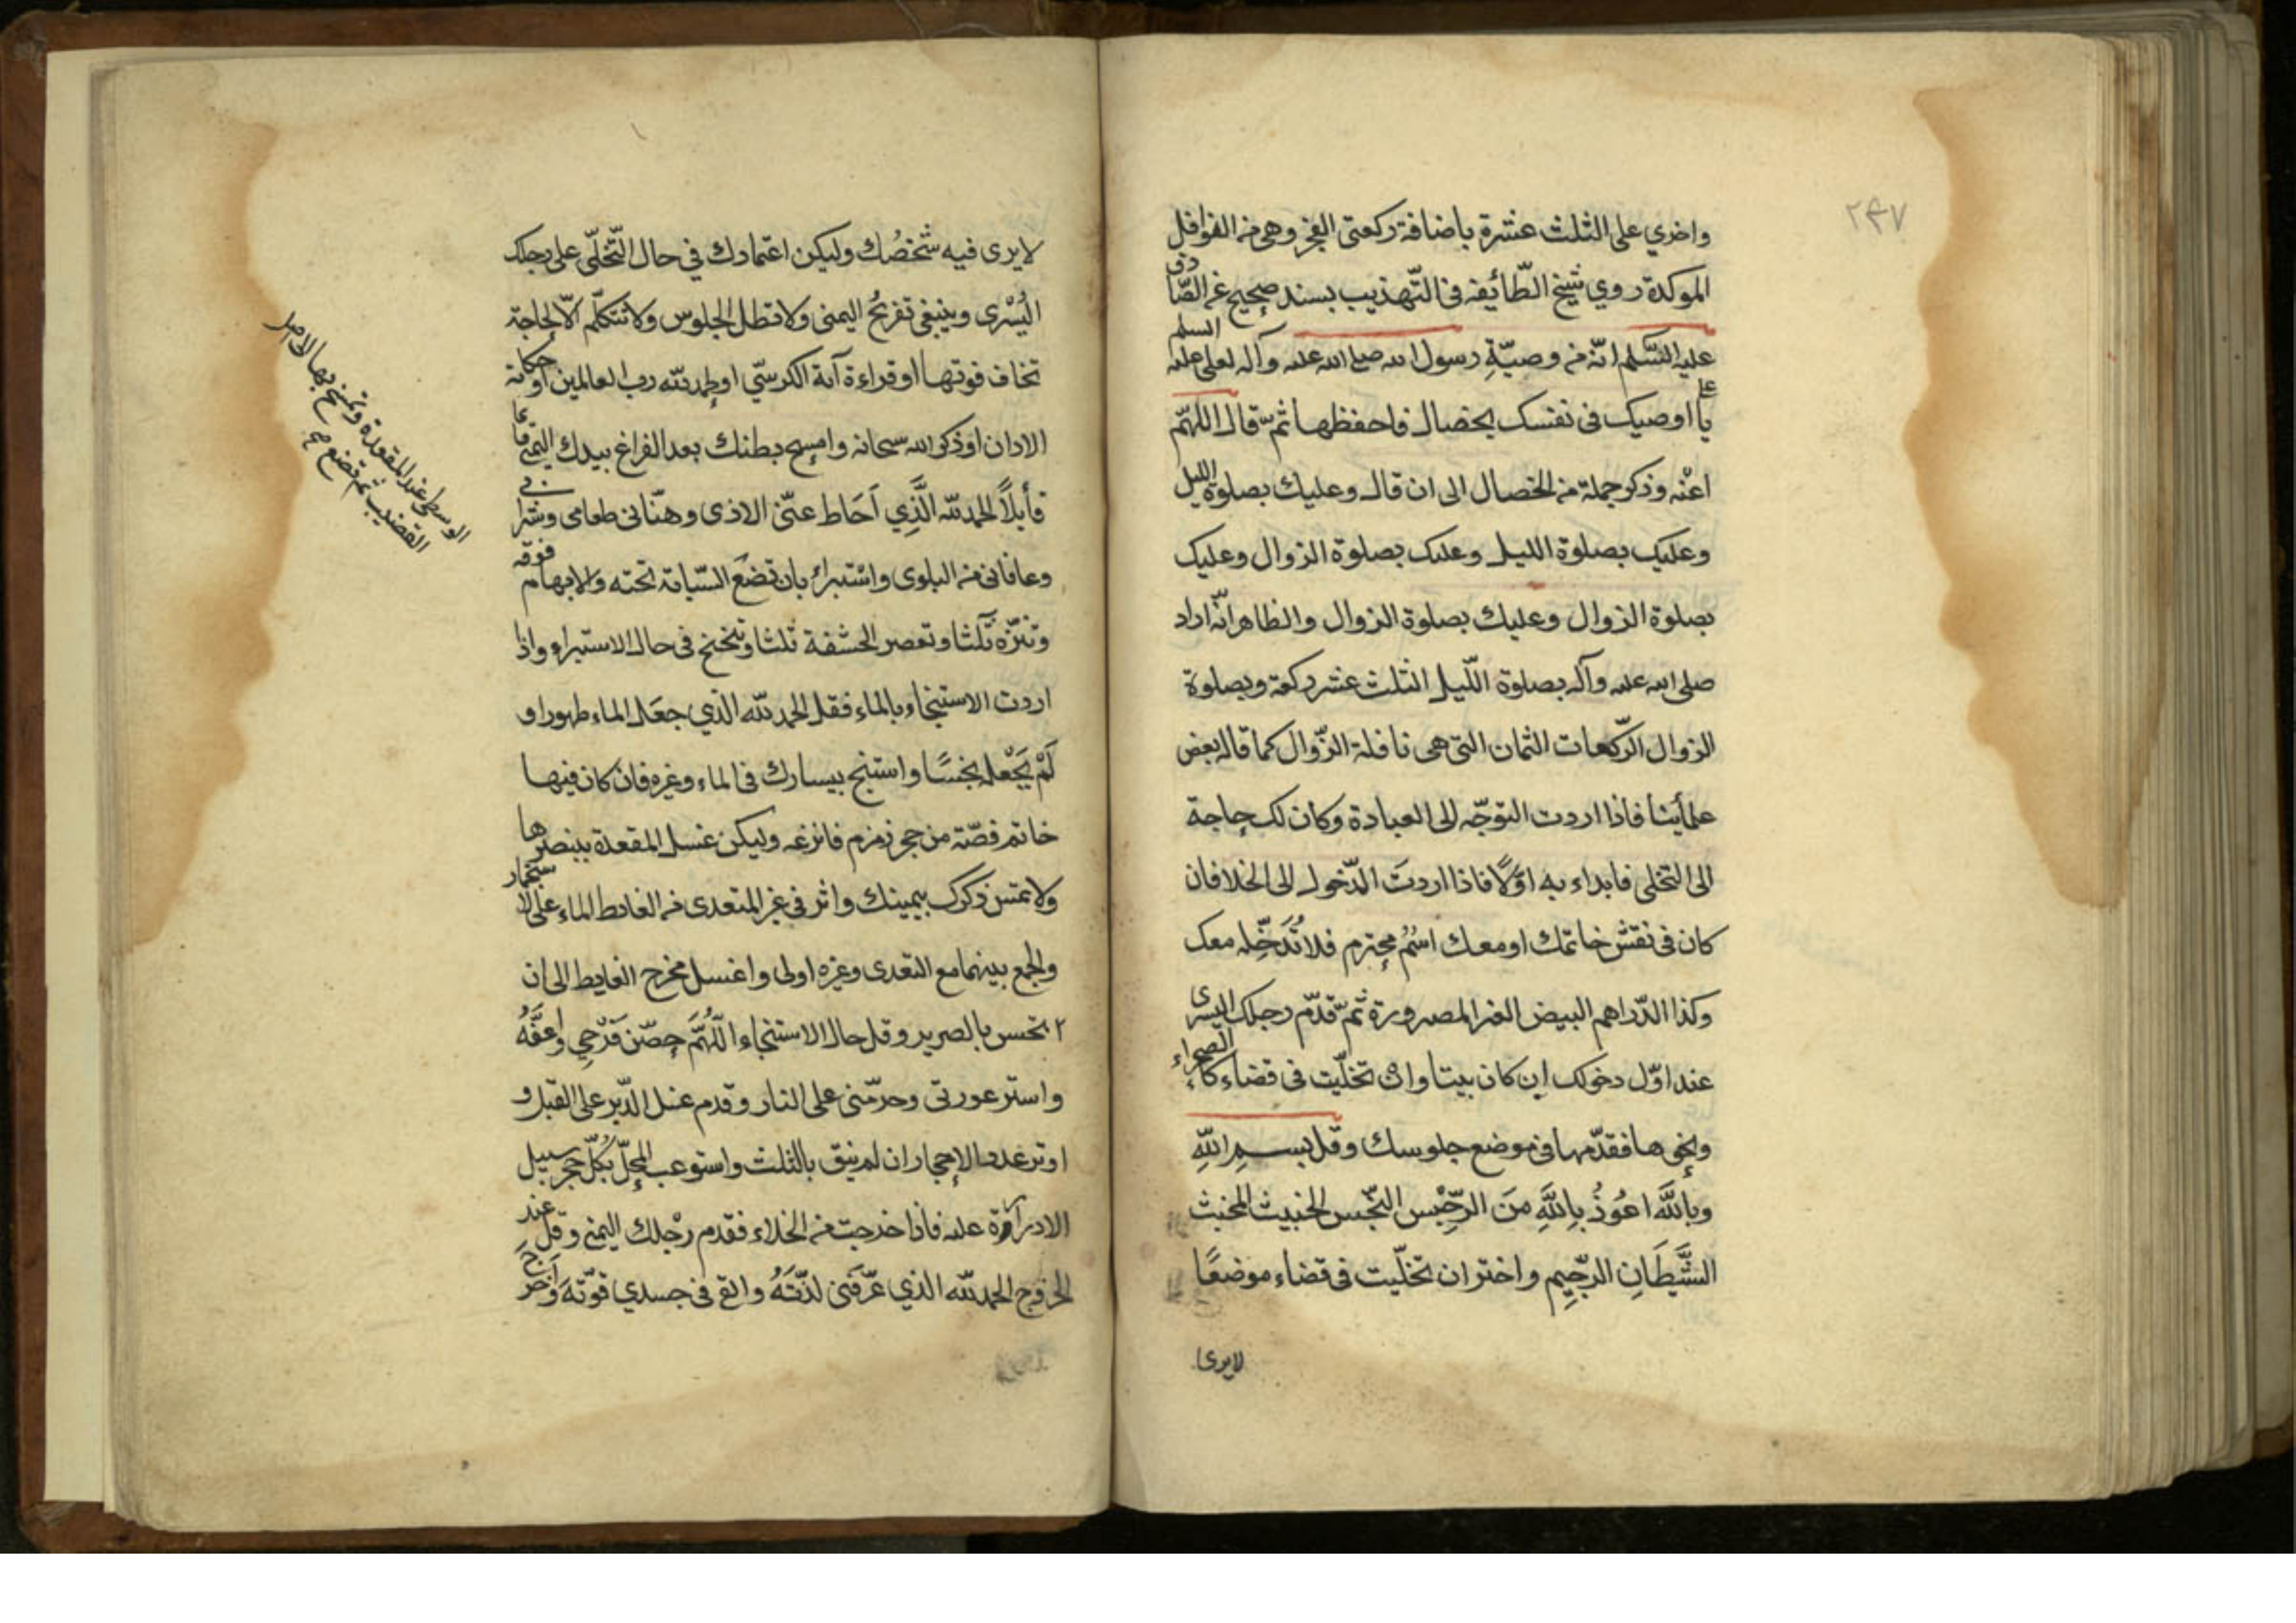 ٢٤٧
واخري على الثلث عشرة باضافة ركعتى الفجر وهى من النوافل
الموكدة روي شيخ الطّائفه فى التّهذيب بسند صحيح عن الصّادق
عليه السّلم انّه من وصيّةِ رسول الله صلى الله عليه وآله لعلى عليه السلم
يا على اوصيك فى نفسك بخصال فاحفظها ثمّ قال اللهمّ
اعنْه وذكر جملة من الخصال الى ان قال وعليك بصلوة الليل
وعليك بصلوة الليل وعليك بصلوة الزوال وعليك
بصلوة الزوال وعليك بصلوة الزوال والظاهر انّه اراد
صلى الله عليه وآله بصلوة اللّيل الثلث عشر ركعة وبصلوة
الزوال الرّكعات الثمان التى هى نافلة الزّوال كما قاله بعض
علمائنا فاذا اردت التوجّه الى العبادة وكان لك حاجة
الى التخلى فابداء به اوّلًا فاذا اردتَ الدّخول الى الخلا فان
كان فى نقش خاتمك او معك اسْمٌ محترم فلا تُدَخّله معك
وكذا الدّراهم البيض الغير المصرورة ثمّ قدّم رجلك اليسرى
عند اوّل دخولك ان كان بيتا وان تخلّيت فى فضاء كالصحراء
ونحوها فقدّمها فى موضع جلوسك وقل بسمِ اللّهِ
وبِاللَّه اعُوذُ بِاللَّهِ مَن الرِّجْس النّجس الخبيث المخبث
الشَّيْطَانِ الرجِّيمِ واختر ان تخلّيت فى فضاء موضعًا
لايرى
لايرى فيه شخصُك وليكن اعتمادك في حال التّخلّى على رجلك
اليُسْرى وينبغى تفريجُ اليمنى ولا تطل الجلوس ولا تتكلّم الّا لحاجة
تخاف فوتها او قراءة آية الكرسّي او الحمد للّه رب العالمين او حكاية
الاذان او ذكر الله سبحانه وامسح بطنك بعد الفراغ بيدك اليمنى قائما
قائلًا الحمد للّه الَّذِي اَحَاط عنّى الاذى وهنّانى طعامى وشرابى
وعافانى من البلوى واستبراء بان تضعَ السّبابة تحته والابهام فوقه
وتنتره ثلثا وتعصر الحشفة ثلثا وتنحنح فى حال الاستبراء واذا
اردت الاستنجاء بالماء فقل الحمد للّه الذي جعَل الماء طهورا و
لَمْ يَجْعله نجسًا واستنج بيسارك فى الماء وغيره فان كان فيها
خاتم فصّه من حجر زمزم فانزعه وليكن غسل المقعدة ببنصرها
ولا تمس ذكرك بيمينك واثر فى غير المتعدى من الغايط الماء على الاستجمار
والجمع بينهما مع التعدى وغيره اولى واغسل مخرج الغايط الى ان
تحس بالصرير وقل حال الاستنجاء اللّهُمَّ حصّن فَرْجي واعفَّهُ
واستر عورتى وحرّمنى على النار وقدم غسل الدّبر على القبل و
اوتر عدد الاحجار ان لم ينق بالثلث واستوعب المحلّ بكُلّ حجر سبيل
الادارة عليه فاذا خرجت من الخلاء فقدم رْجلك اليمنى وقل عند
الخروج الحمد للّه الذي عرّفنى لذّتَهُ وابقى فى جسدي قوّته واخرج
الوسطى عند المقعدة وتمسح بها الى اصل
القضيب ثم تضع